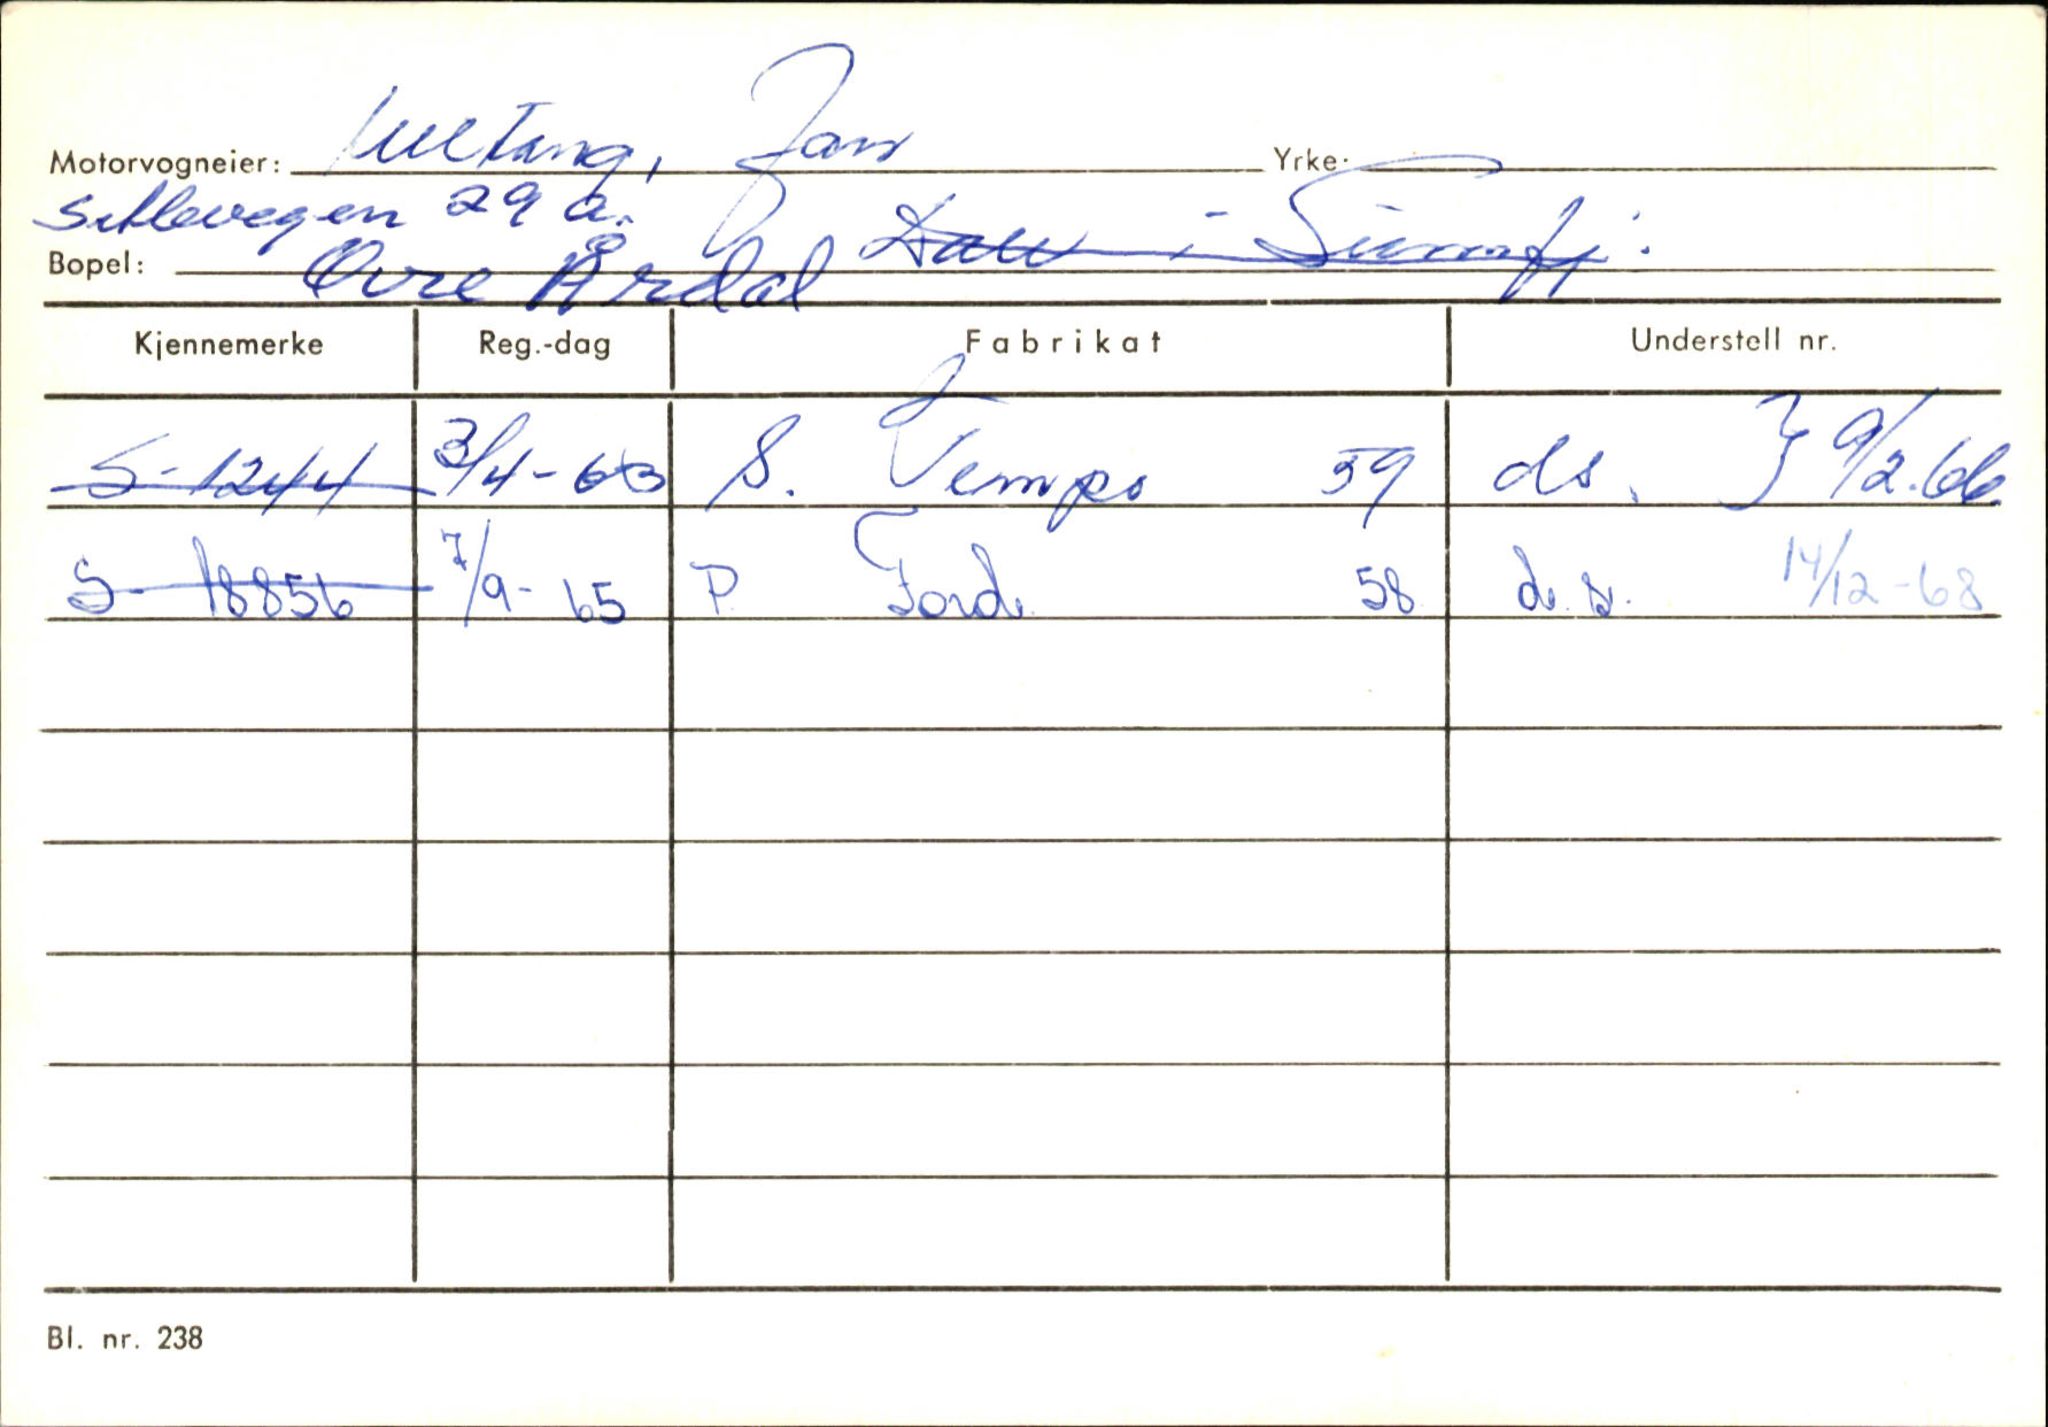 Motorvogneier: Jan Yrke:
29 a.
Bopel: Øvre Årdal i Sunnfj.
Kjennemerke Reg.-dag Fabrikat Understell nr.
S-1244 3/4-63 S. Tempo 59 ds. } 9/2.66
S-18856 7/9-65 P. Ford. 58 d.s. 14/12-68
Bl. nr. 238